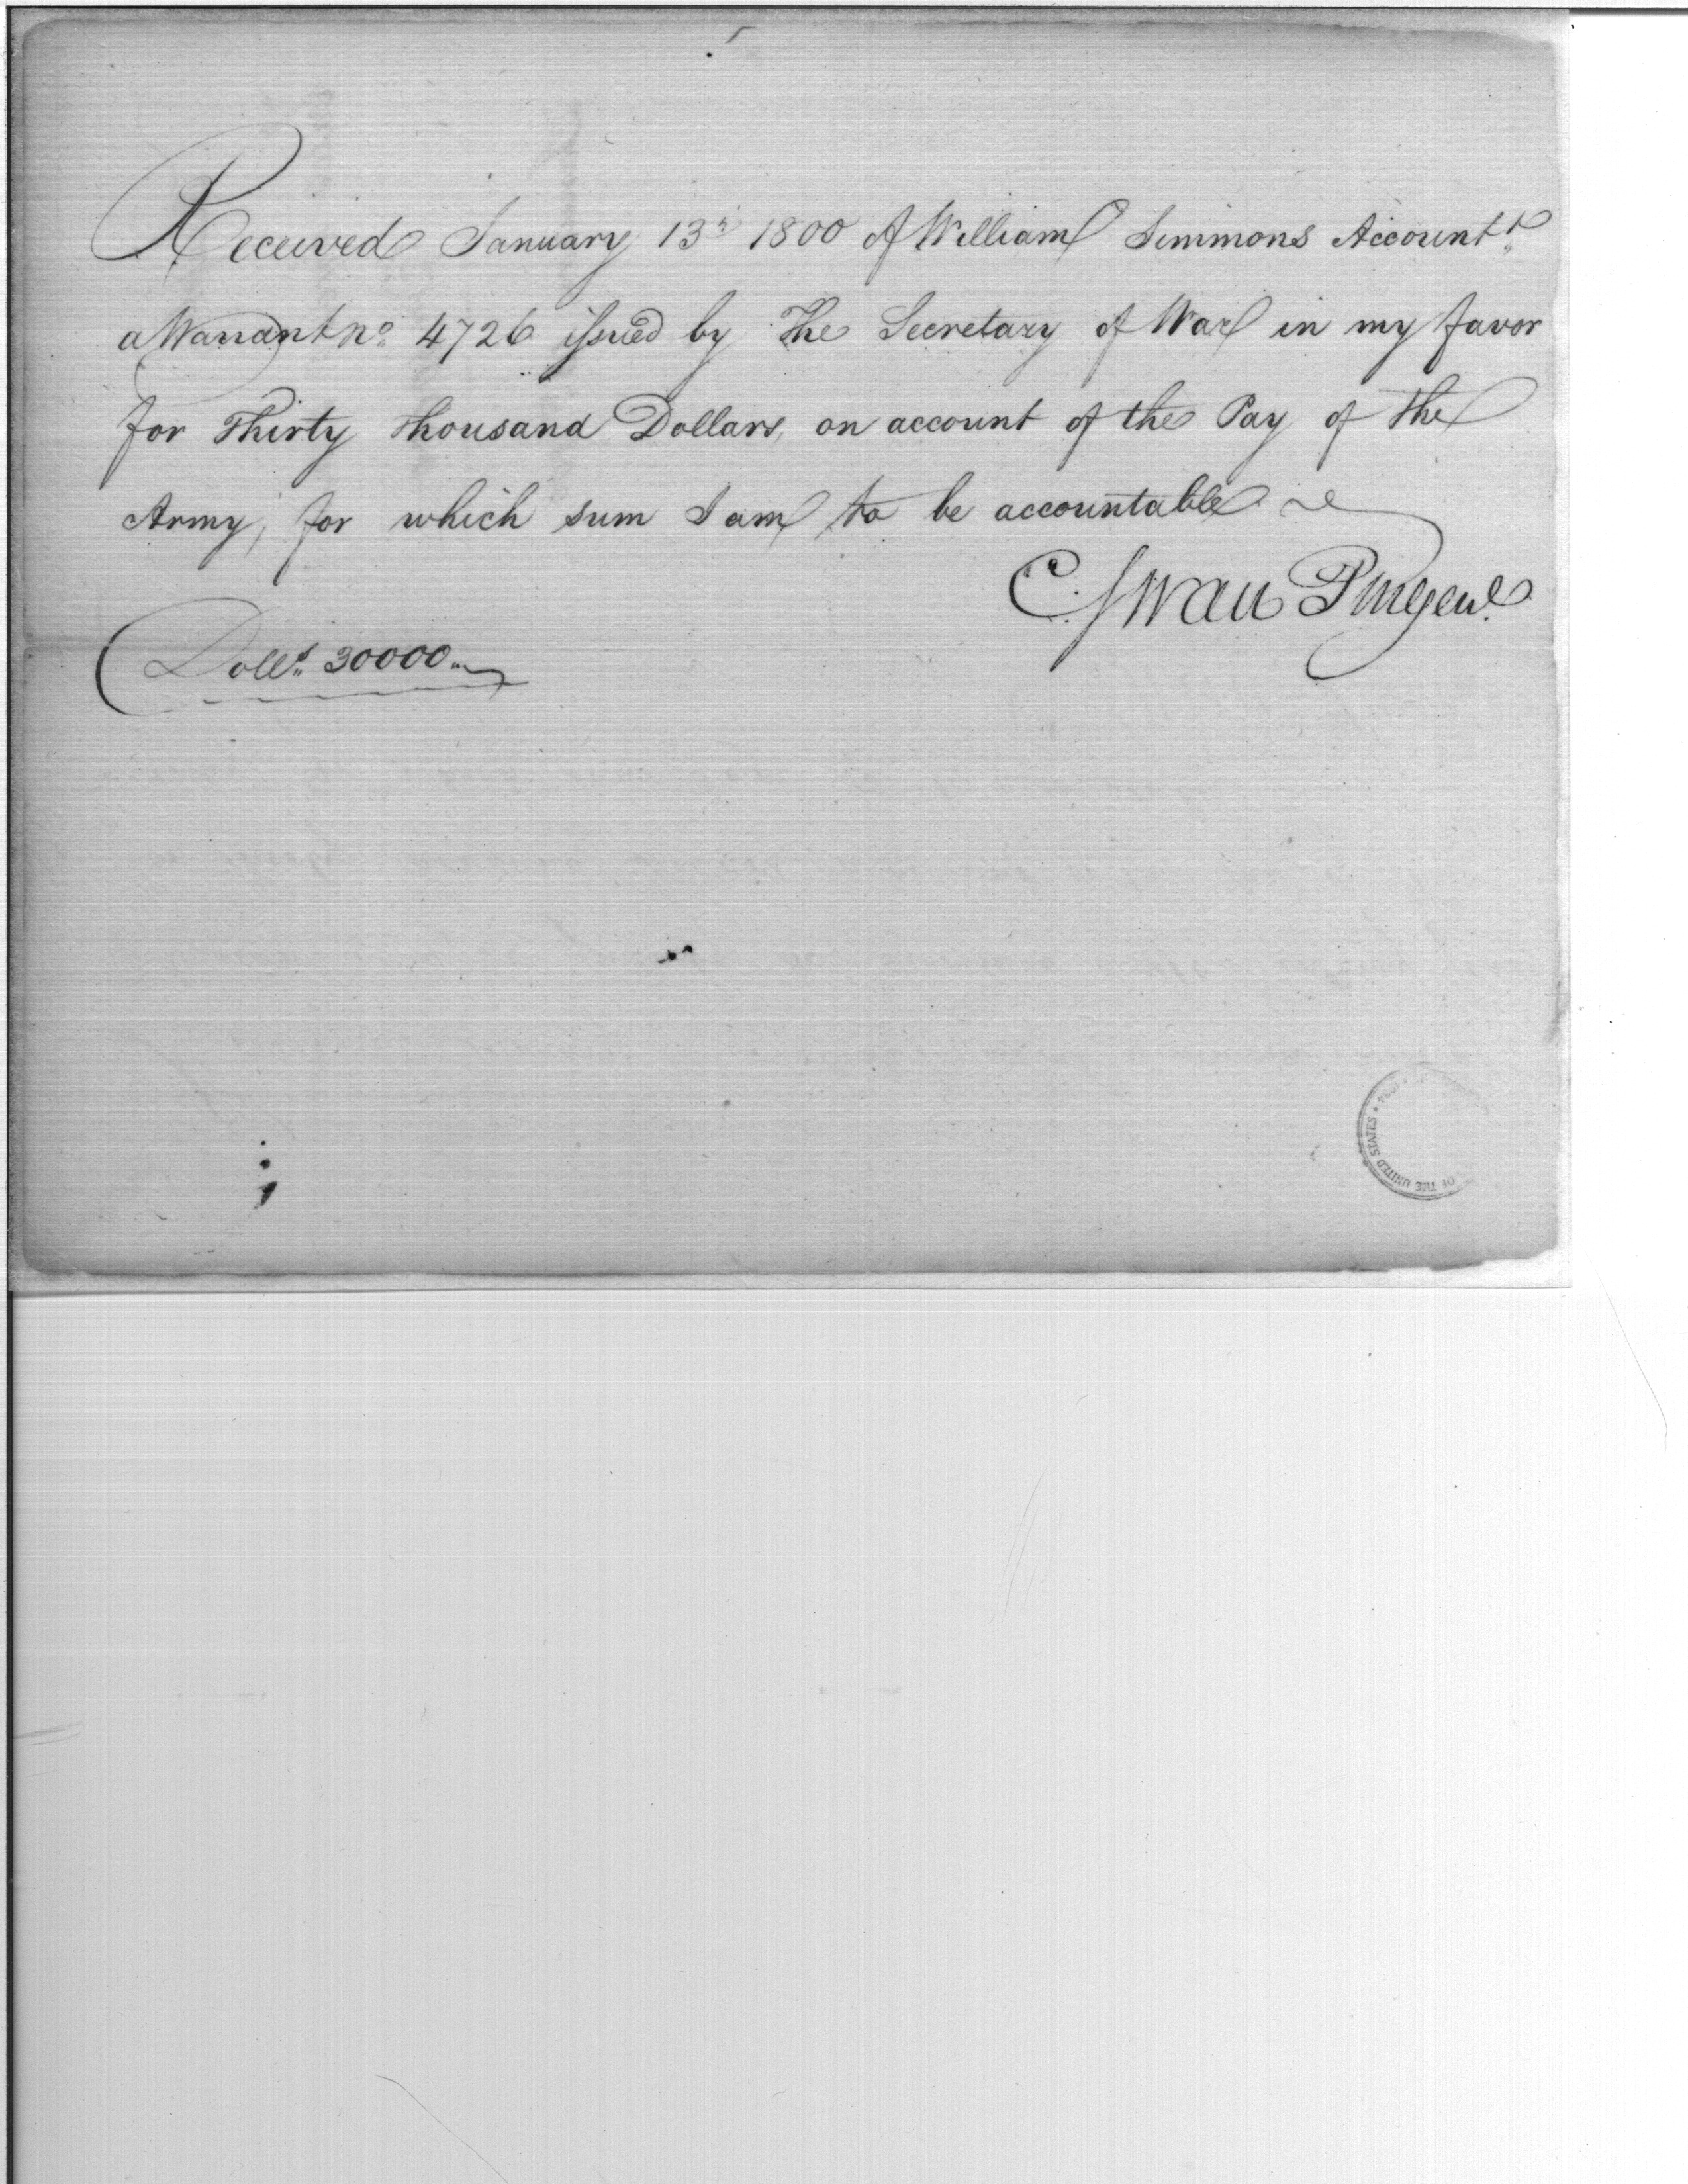 Received January 13th 1800 of William Simmons Accountt.
a Warrant no. 4726 issued by the Secretary of War in my favor
for Thirty thousand Dollars, on account of the Pay of the
Army, for which sum I am to be accountable
C. Swan PMGenl.
Dolls. 30000..
OF THE UNITED STATES